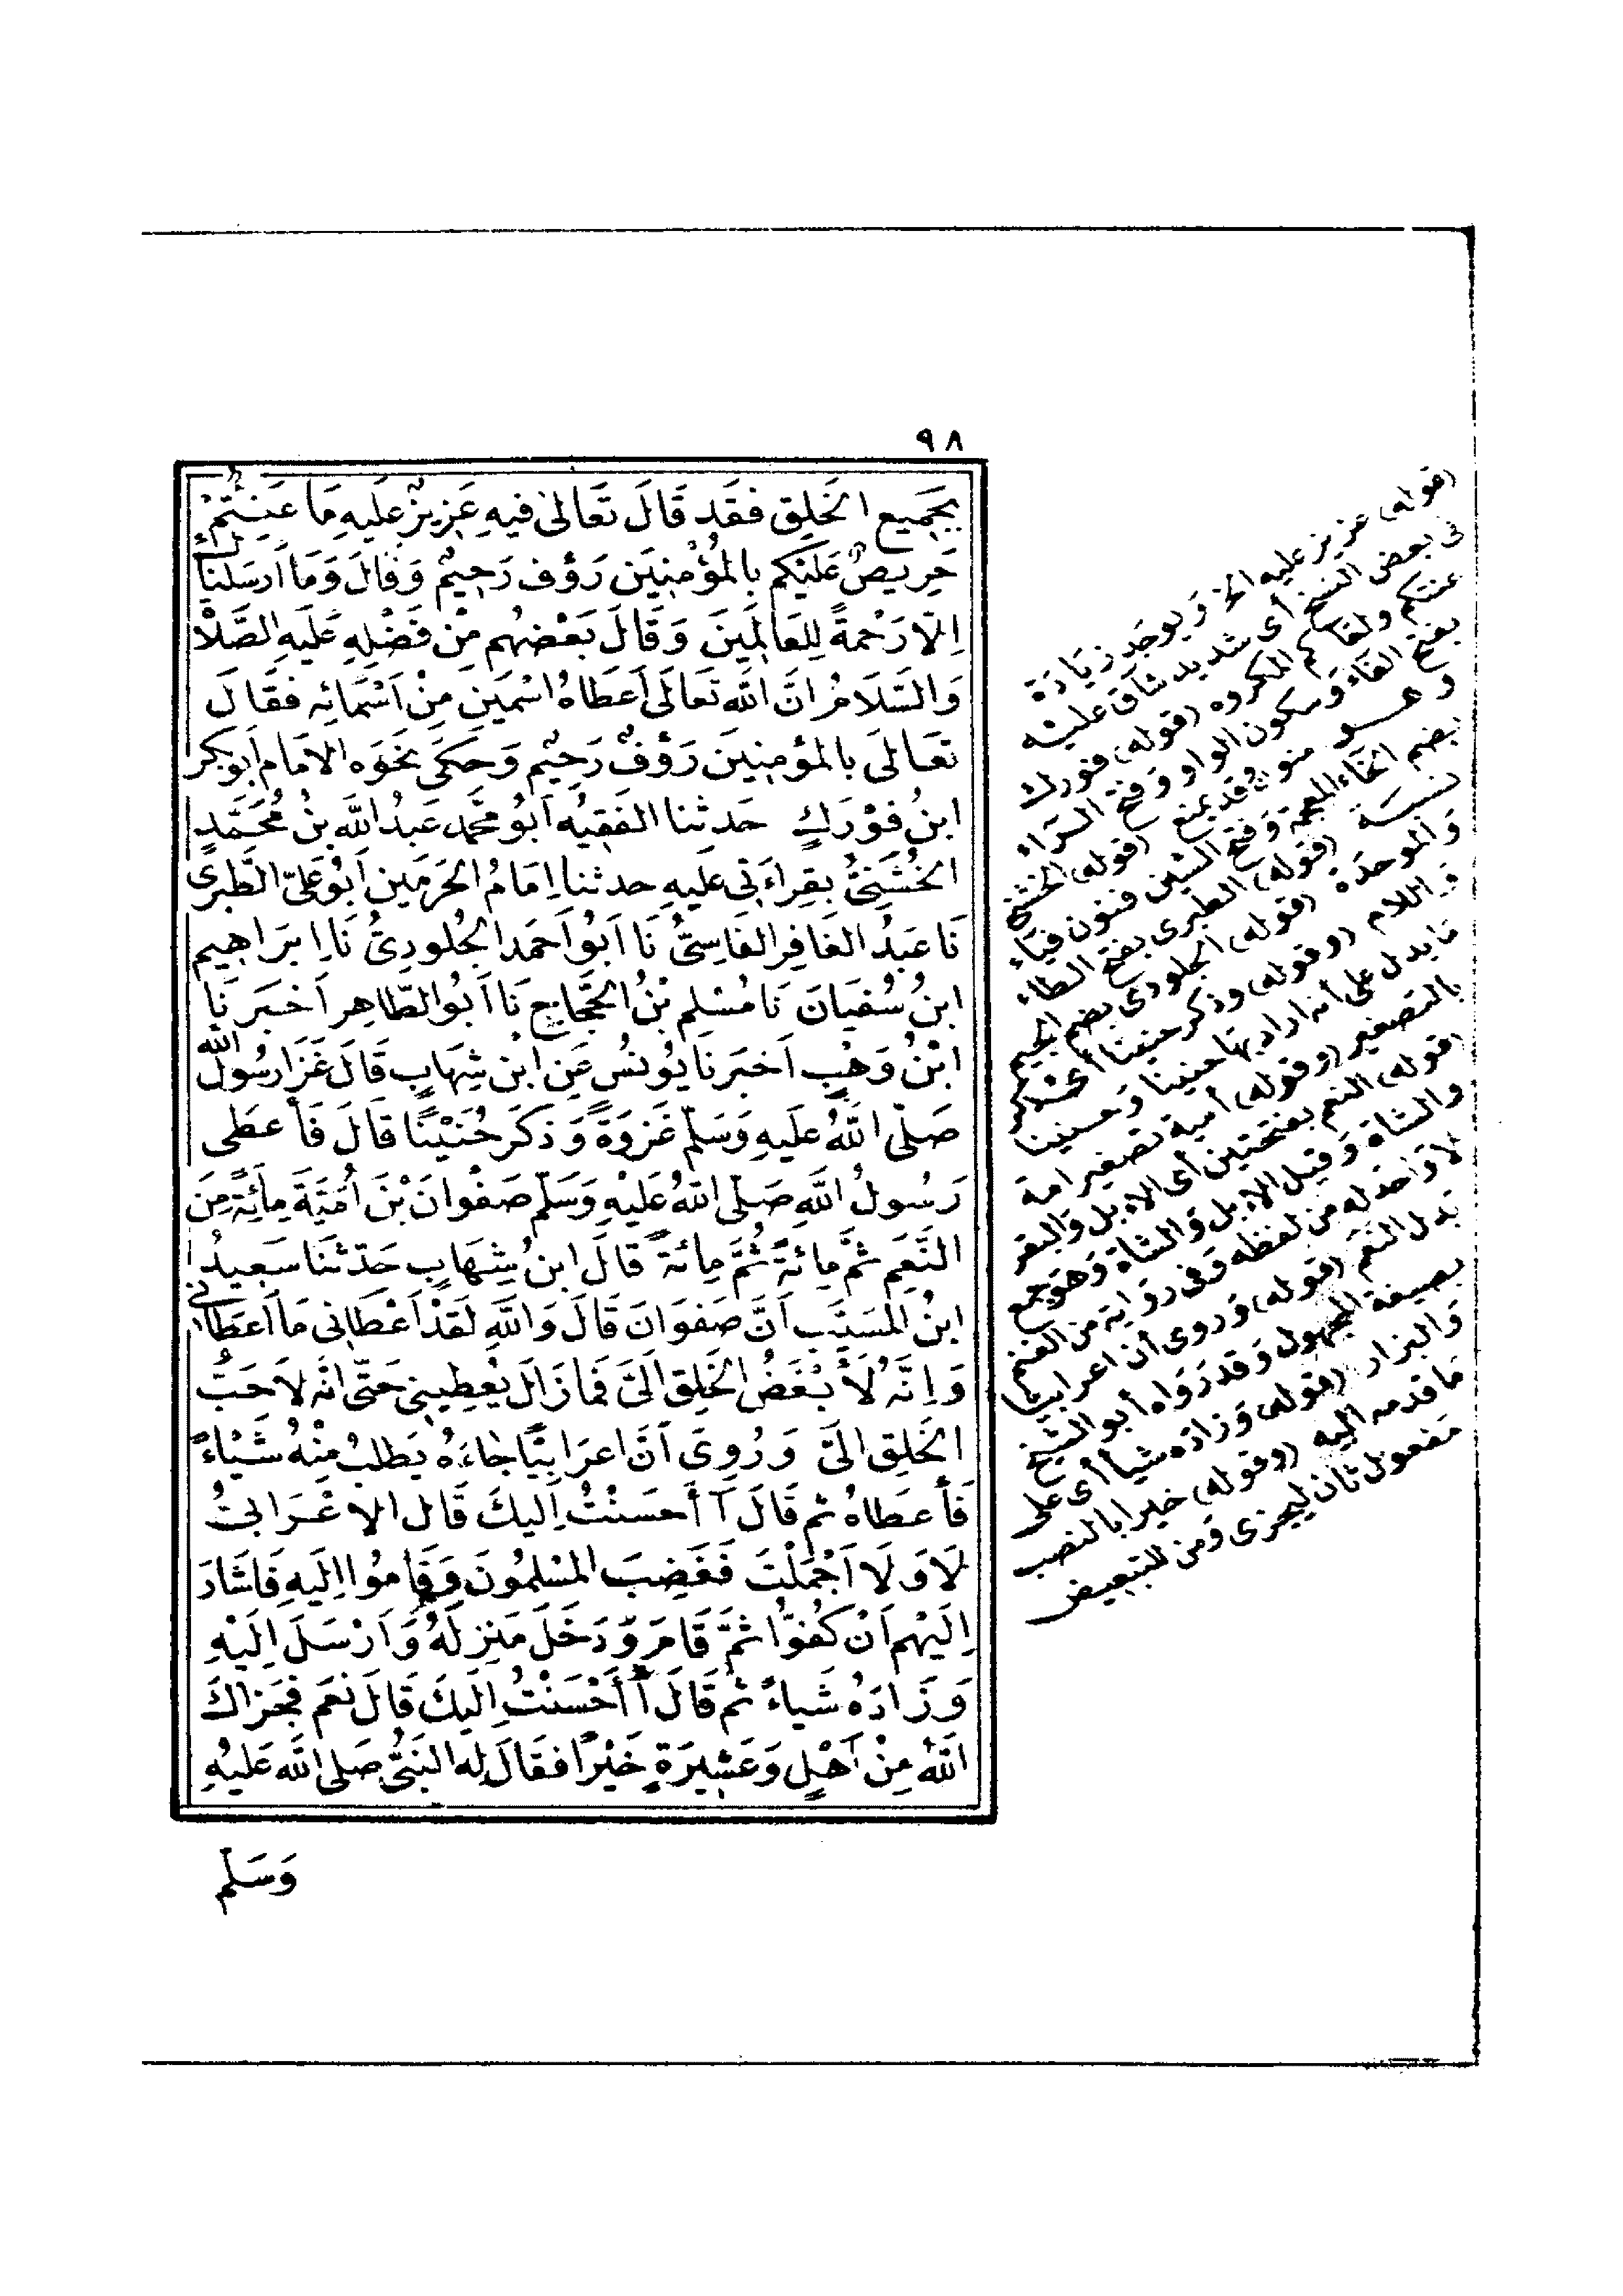 ٩٨
بجَمِيع الخَلِق فقَد قَالَ تَعَالىٰ فيهِ عَزِيزٌ عَلَيهِ مَا عَنِتُّمْ
حَرِيصٌ عَلَيْكُم بالمُؤْمِنِيَن رَؤُف رَحِيمٌ وَقَالَ وَمَا اَرسَلنَاكَ
اِلّا رَحْمةً لِلعَالمَِينَ وَقَالَ بَعْضهُم مِنْ فَضْلِهِ عَلَيهِ الصَّلَاةُ
وَالسَّلَامُ انَّ اللهَ تعَالَى اَعطَاهُ اسْمَينِ مِنْ اَسْمَائِه فقَالَ
تعَالَى بالمؤمِنِينَ رَؤُفٌ رَحِيْم وَحكَى نحَوَه الامَام اَبوبَكر
ابنُ فوْرَكٍ حَدثنا الفَقِيُه اَبوُ محَّمد عَبدُ اللهَّ بنُ مُحَمَّدٍ
الخُشَنِىُّ بقِراءَتِى عليهِ حدثنا اِمَامُ الحَرمَين اَبوُ عَلىّ الطَّبرى
نَا عَبدُ الغَافِر الفَاسِىُّ نَا اَبوُ اَحمَد الجُلودِىُّ نَا اِبرَاهيم
ابنُ سُفيَانَ نَا مُسْلِم بْنُ الحَجَّاج نَا اَبوُ الطَّاهِر اَخبَرنَا
ابْنُ وَهْبٍ اَخبَرنَا يوُنسُ عَن ابن شِهَابٍ قَالَ غَزَا رسُولُ الله
صَلّى اللهُ عَليَهِ وَسَلّم غَزوَةً وَذكَر حُنَيْنًا قَالَ فَأَعطَى
رَسُولُ اللهِ صَلّى اللهُ عَليْهِ وَسَلّم صَفْوانَ بْنَ اُمَيَّةَ مِائةً مِنَ
النَّعَم ثمَّ مِائةً ثُمَّ مِائةً قَالَ ابنُ شِهَابٍ حَدّثنَا سَعِيدُ
ابنُ المُسَيَّبِ اَنَّ صَفوَانَ قَالَ وَاللهِ لَقَدْ اَعْطَانِى مَا اَعطَانِى
وَاِنَّهُ لَأَبْغَضُ الخَلِق اِلَىَّ فَمازَالَ يُعطِينِى حَتّى انَّه لَاَحَبُّ
الخَلِق الَىَّ وَرُوِىَ اَنَّ اعرَابِيًّا جَاءَهُ يَطلبُ مِنْهُ شَيْاءً
فَأَعطَاهُ ثم قَالَ آأَحسَنْتُ اِليكَ قَال الاعْرَابىُّ
لَا وَلَا اَجْمَلْتَ فَغَضِبَ المُسْلِمُونَ وَقَامُوُا اِلَيهِ فَاشَارَ
اِلَيْهِم اَنْ كُفوُّا ثمَّ قَامَ وَدَخَلَ مَنزِلَهُ وَاَرْسَلَ اِلَيْهِ
وَزَادَهُ شَياءً ثم قَالَ آأَحْسَنْتُ اِلَيكَ قَالَ نعَم فجَزاكَ
اللهُ مِنْ اَهْلٍ وَعَشِيرَةٍ خَيْرًا فقَالَ لهِ النبَىُّ صَلى اللهَ عَليْهِ
وَسَلَّم
(قوله) عزيز عليه الخ وَيوجَد زيَادَة
فى بعض النسخ أى شديد شاق عليْه
عنتكم ولقاكم المكروه (قوله) فورك
بفتح الفَاء وَسكون الواو وَفتح الرَاء
وهو منون وقد يمنع (قوله) الخشنى
بضم الخَاء المعجمة وَفتح الشين فنون فيَاء
نسبَة (قوله) الطبرى بفتح الطاء
وَالموحدَة (قوله) الجلودى بضم الجيم
وَاللام (وقوله) وذكر حنينا أى ذكر
مَا يدل على أنه اراد بهَا حنينا وَحنينا
بالتصغير (وقوله) أمية تصغير امة
(قوله) النعم بفتحتين أى الابل وَالبقر
وَالشاة وَقيل الابل وَالشاة وَهوَ جمع
لا وَاحد له من لفظه وَفى روَاية من الغنم
بدل النعَم (قوله) وَروى أن اعرابيا
بصيغة المجهول وَقد رَوَاه أبو الشيخ
وَالبزار (قوله) وَزادَه شيأ أى على
مَا قدمه اليه (وقوله) خيرا بالنصب
مَفعول ثان ليجزى وَمن للتبعيض